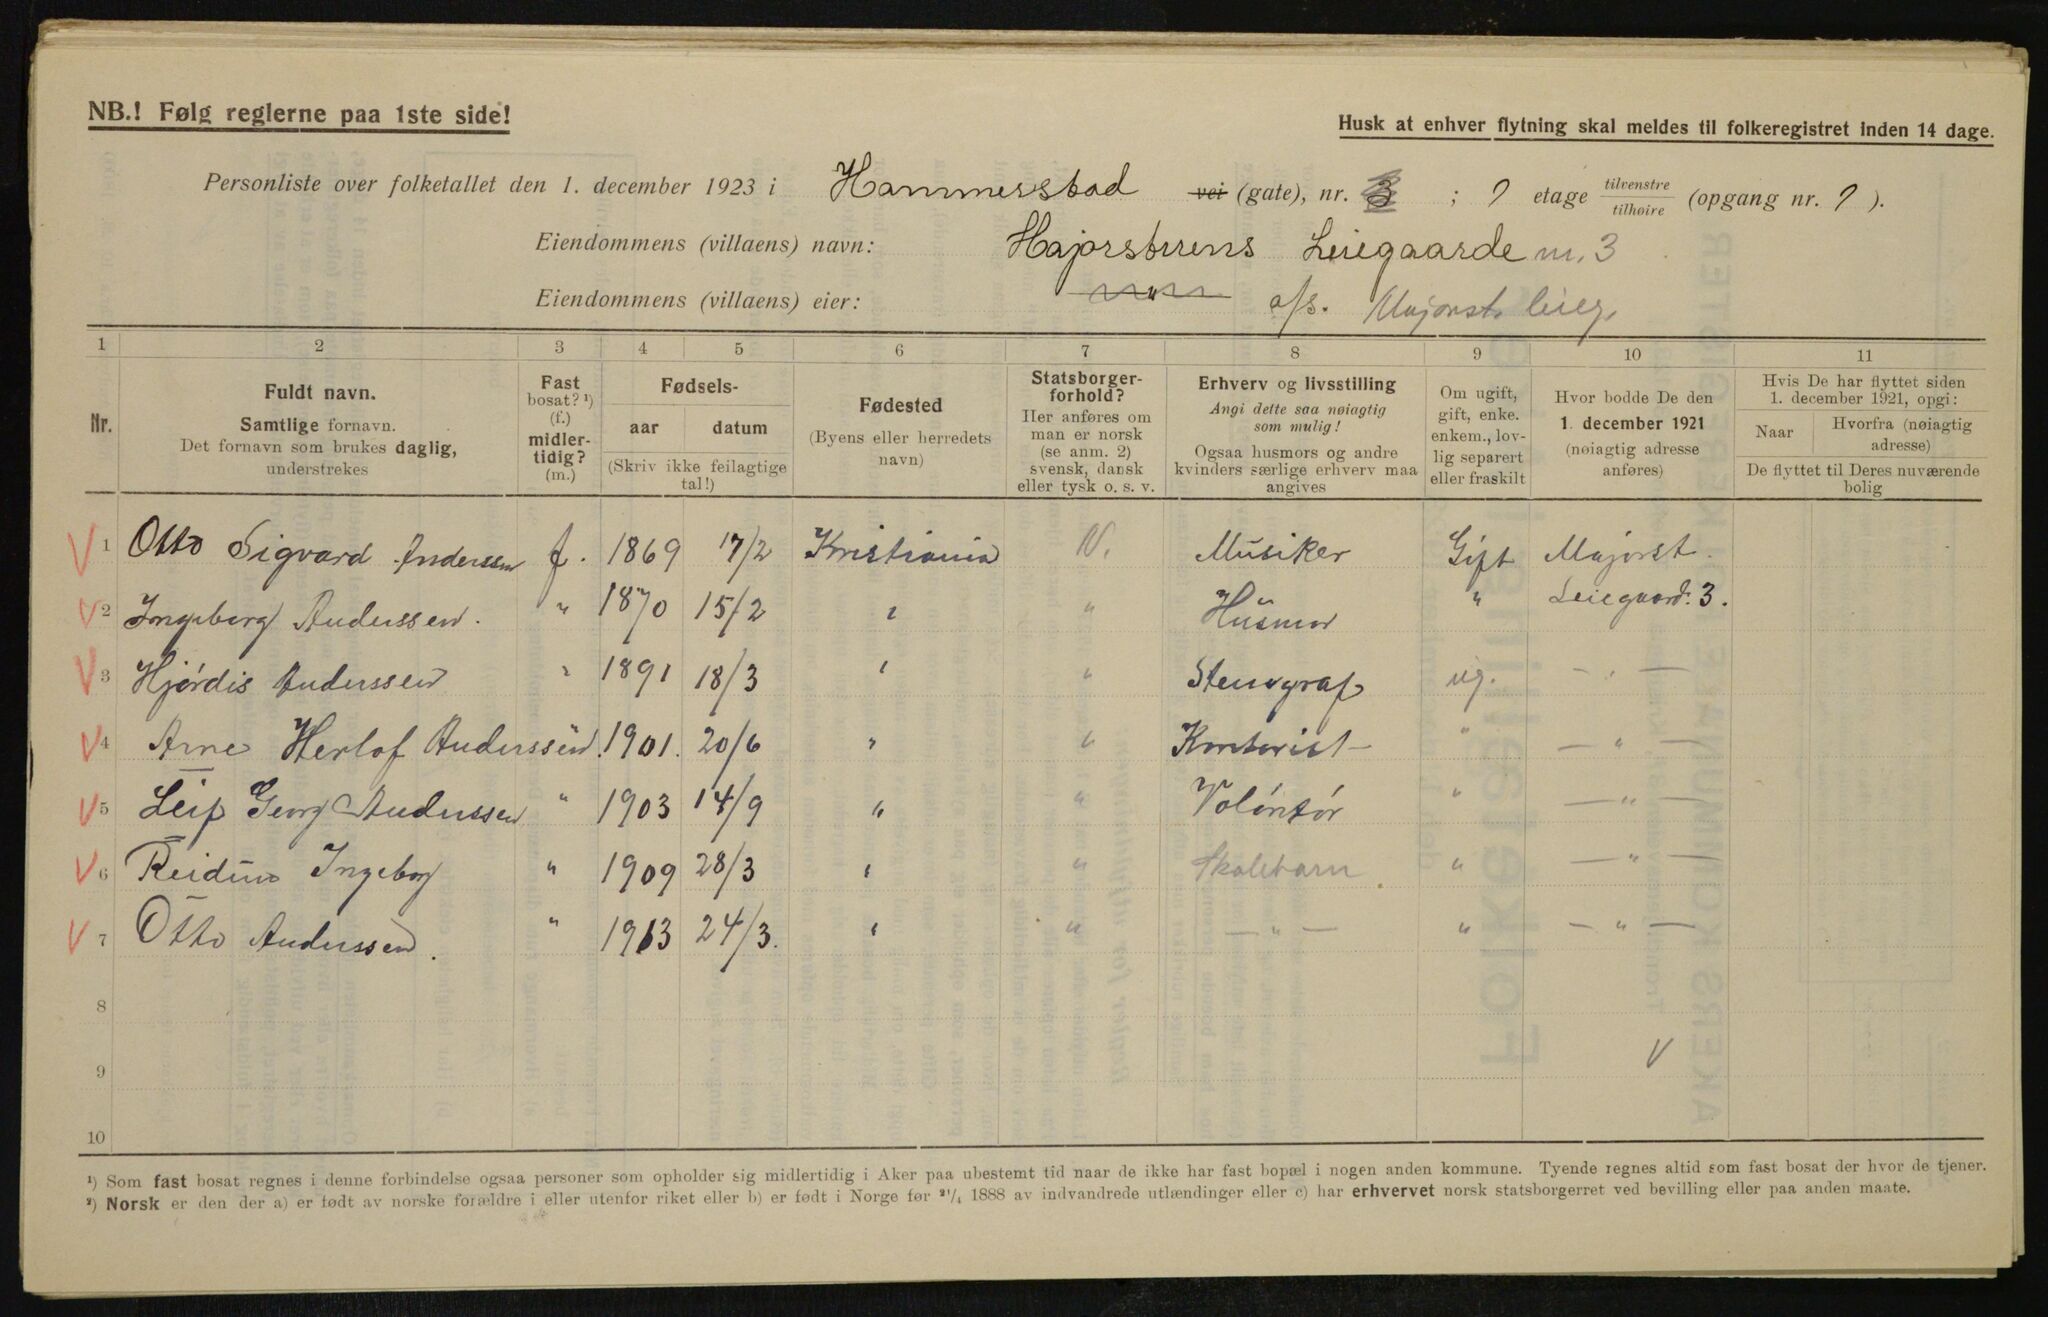 NB.! Følg reglerne paa 1ste side!
Husk at enhver flytning skal meldes til folkeregistret inden 14 dage.
Personliste over folketallet den 1. december 1923 i Hammerstad vei (gate), nr. 3 ; 1 etage tilvenstre tilhøire (opgang nr. 1 ).
Eiendommens (villaens) navn: Majorstuens Leiegaarde nr. 3
Eiendommens (villaens) eier: " a/s. Majorst. leieg.
1 2 3 4 5 6 7 8 9 10 11
Nr.
Fuldt navn.
Samtlige fornavn.
Det fornavn som brukes daglig,
understrekes
Fast
bosat? ¹)
(f.)
midler-
tidig?
(m.)
Fødsels-
aar datum
(Skriv ikke feilagtige
tal!)
Fødested
(Byens eller herredets
navn)
Statsborger-
forhold?
Her anføres om
man er norsk
(se anm. 2)
svensk, dansk
eller tysk o. s. v.
Erhverv og livsstilling
Angi dette saa nøiagtig
som mulig!
Ogsaa husmors og andre
kvinders særlige erhverv maa
angives
Om ugift,
gift, enke.
enkem., lov-
lig separert
eller fraskilt
Hvor bodde De den
1. december 1921
(nøiagtig adresse
anføres)
Hvis De har flyttet siden
1. december 1921, opgi:
Naar Hvorfra (nøiagtig
adresse)
De flyttet til Deres nuværende
bolig
V 1 Otto Sigvard Anderssen f. 1869 17/2 Kristiania N. Musiker Gift Majorst.
V 2 Ingeborg Anderssen. " 1870 15/2 " " Husmor " Leiegaard. 3.
V 3 Hjørdis Anderssen " 1891 18/3 " " Stenograf ug. — " —
V 4 Arne Herlof Anderssen " 1901. 20/6 " " Kontorist " — " —
V 5 Leif Georg Anderssen " 1903 14/9 " " Volontør " — " —
V 6 Reidun Ingeborg " 1909 28/3 " " Skolebarn " — " —
V 7 Otto Anderssen. " 1913 24/3. " " — " — " — " —
8
9
V
10
¹) Som fast bosat regnes i denne forbindelse ogsaa personer som opholder sig midlertidig i Aker paa ubestemt tid naar de ikke har fast bopæl i nogen anden kommune. Tyende regnes altid som fast bosat der hvor de tjener.
²) Norsk er den der a) er født av norske forældre i eller utenfor riket eller b) er født i Norge før ²¹/₄ 1888 av indvandrede utlændinger eller c) har erhvervet norsk statsborgerret ved bevilling eller paa anden maate.